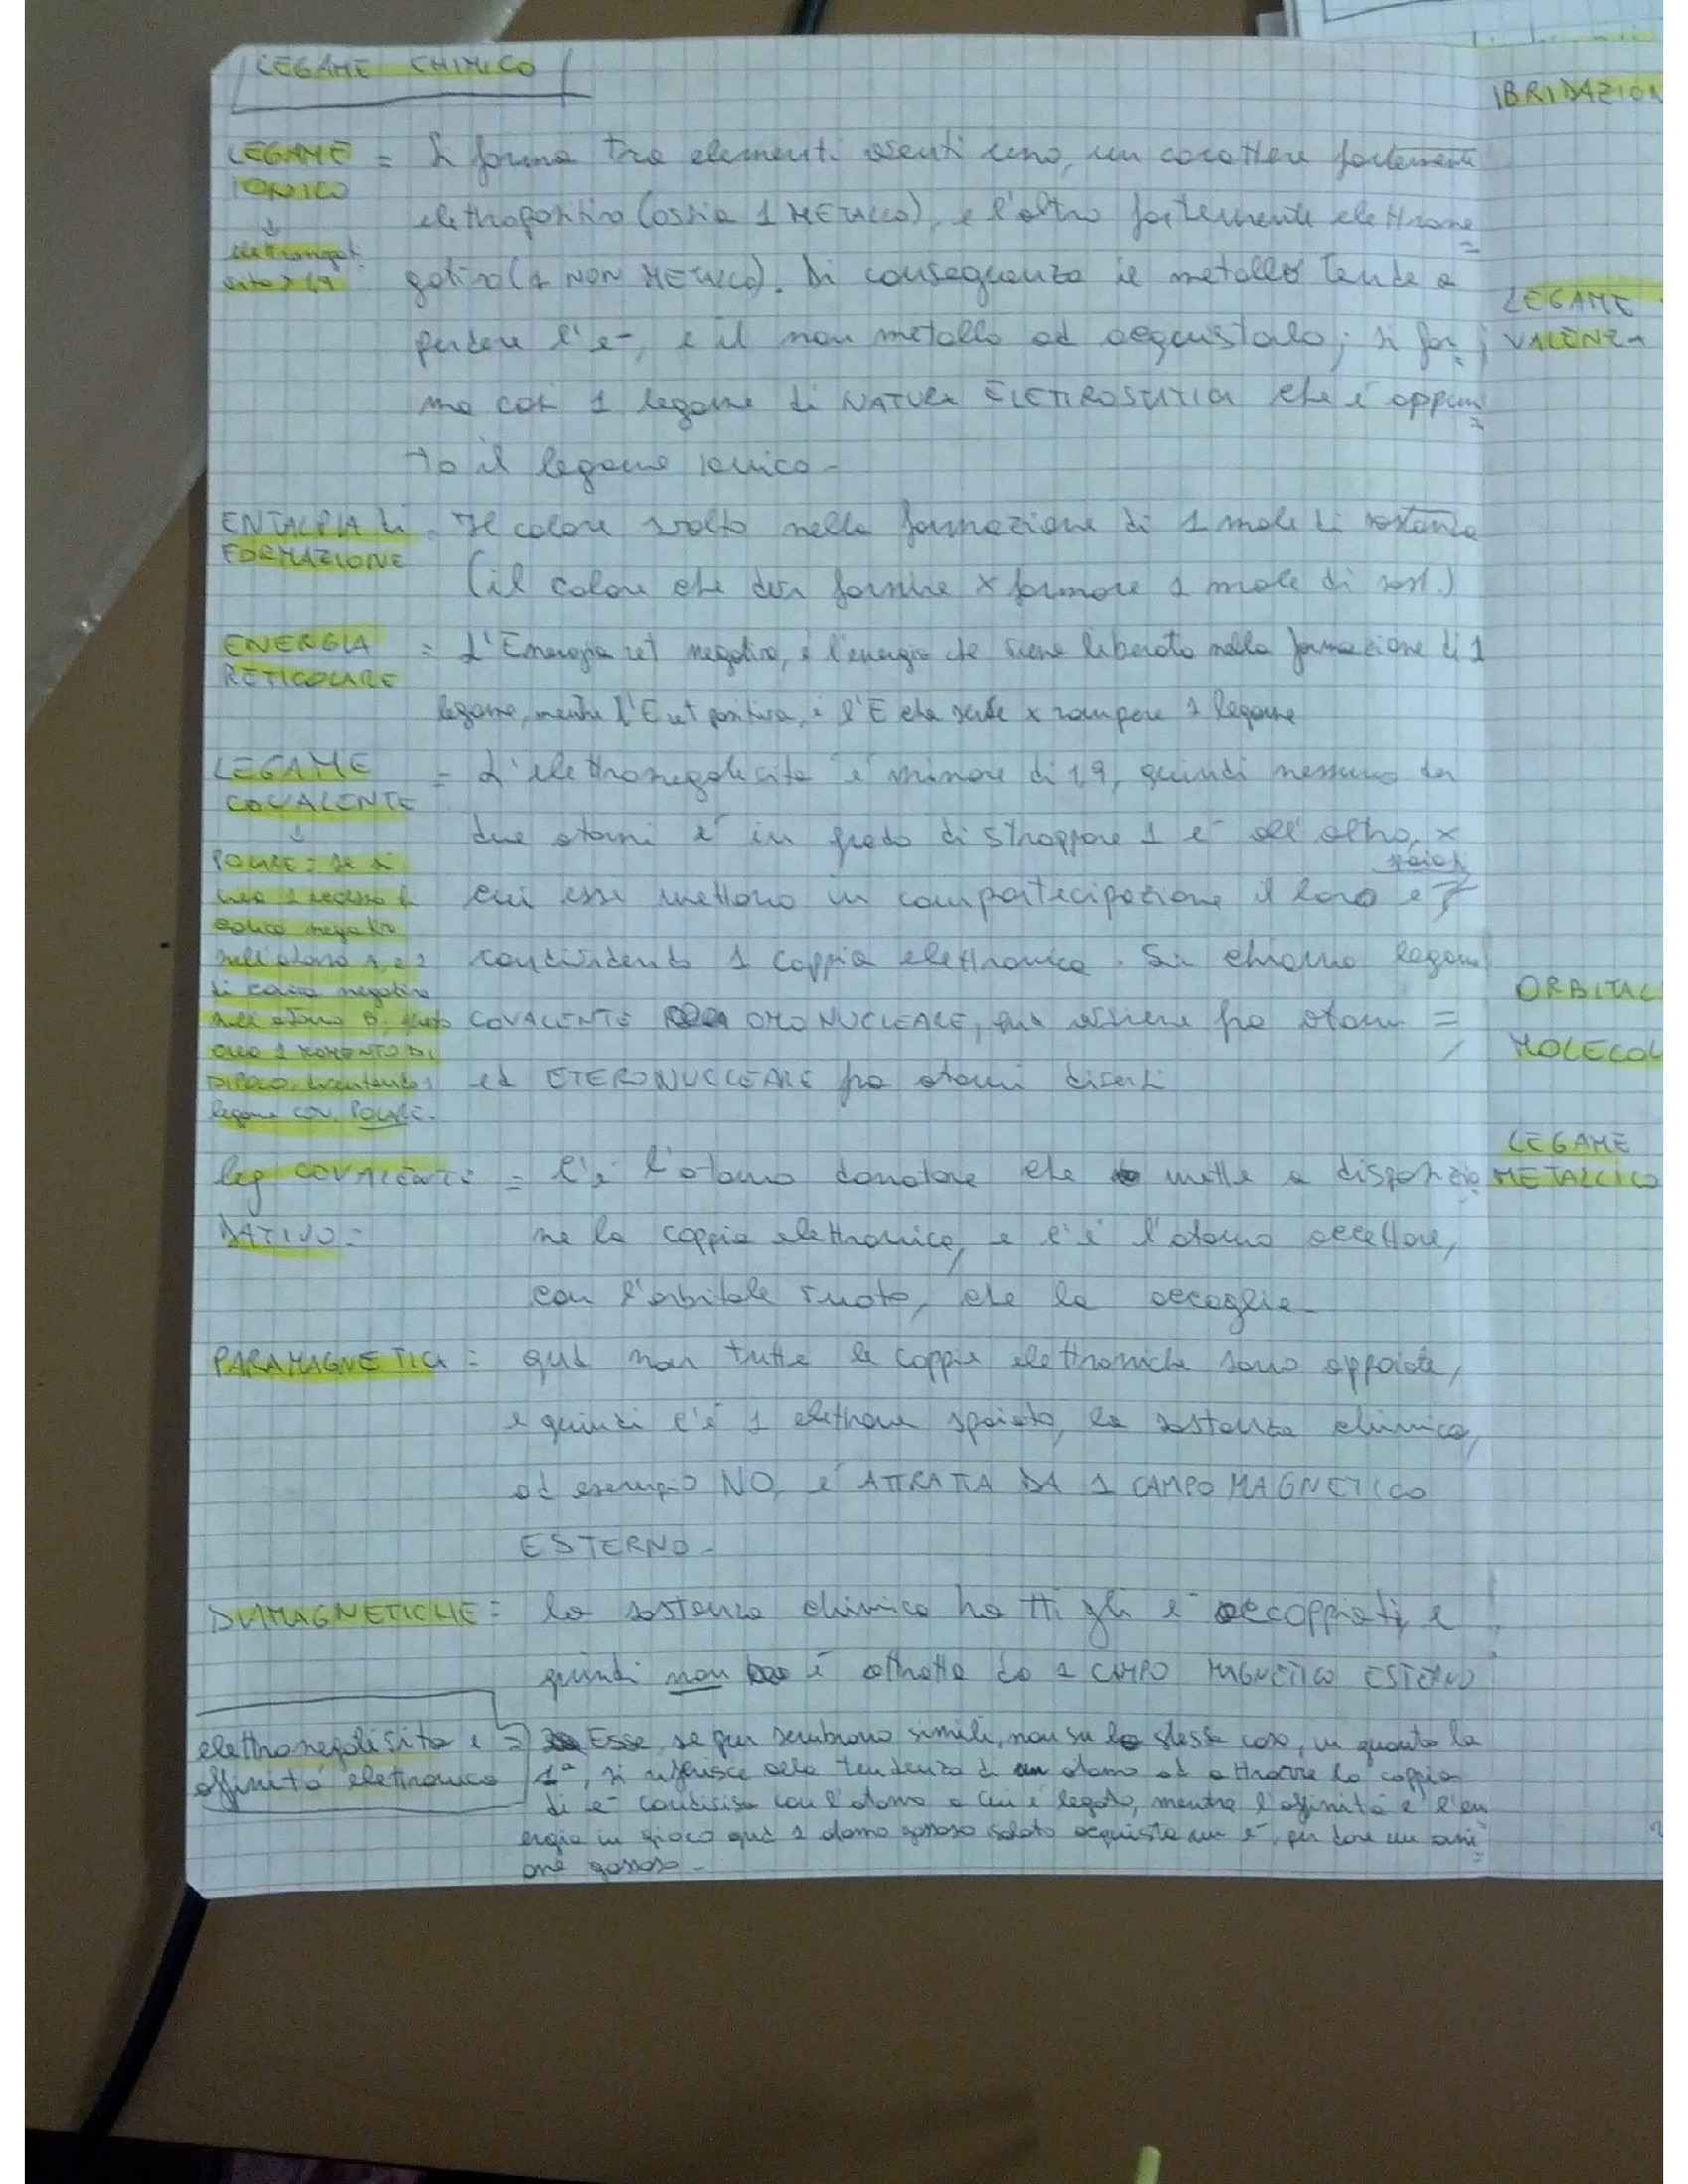 LEGAME CHIMICO
LEGAME IONICO
↓
elettronegati
vità > 1,9
= Si forma tra elementi aventi uno, un carattere fortemente
elettropositivo (ossia 1 METALLO), e l'altro fortemente elettrone
gativo (1 NON METALLO). Di conseguenza il metallo tende a
perdere l'e-, e il non metallo ad acquistarlo; si for
ma così 1 legame di NATURA ELETTROSTATICA che è appun
to il legame ionico-
ENTALPIA di
FORMAZIONE
= Il calore svolto nella formazione di 1 mole di sostanza
(il calore che devi fornire x formare 1 mole di sost.)
ENERGIA
RETICOLARE
= L'Energia ret negativa, è l'energia che viene liberata nella formazione di 1
legame, mentre l'E ret positiva, è l'E che serve x rompere 1 legame
LEGAME
COVALENTE
↓
POLARE = Se si
crea 1 eccesso di
carica negativa
sull'atomo 1, e 1
di carica negativa
sull'atomo B, questo
crea 1 MOMENTO DI
DIPOLO, diventando 1
legame cov. POLARE.
= L'elettronegatività è minore di 1,9, quindi nessuno dei
due atomi è in grado di strappare 1 e- all'altro, x
cui essi mettono in compartecipazione il loro e-
spaiat
condividendo 1 coppia elettronica. Si chiama legame
COVALENTE OMONUCLEARE, qua avviene fra atomi =
ed ETERONUCLEARE fra atomi diversi
leg COVALENTE
DATIVO =
= C'è l'atomo donatore che mette a disposizio
ne la coppia elettronica, e c'è l'atomo accettore,
con l'orbitale vuoto, che la accoglie-
PARAMAGNETICA = qua non tutte le coppie elettroniche sono appaiate,
e quindi c'è 1 elettrone spaiato, la sostanza chimica,
ad esempio NO, è ATTRATTA DA 1 CAMPO MAGNETICO
ESTERNO-
DIAMAGNETICHE = la sostanza chimica ha tti gli e- accoppiati, e
quindi non è attratta da 1 CAMPO MAGNETICO ESTERNO
elettronegatività e
affinità elettronica
=> Esse, se pur sembrano simili, non su la stessa cosa, in quanto la
1ª, si riferisce alla tendenza di un atomo ad attrarre la coppia
di e- condivisa con l'atomo a cui è legato, mentre l'affinità è l'en
ergia in gioco qua 1 atomo gassoso isolato acquista un e-, per dare un ani
one gassoso-
IBRIDAZION
LEGAME
VALENZA
ORBITAL
MOLECOL
LEGAME
METALLICO